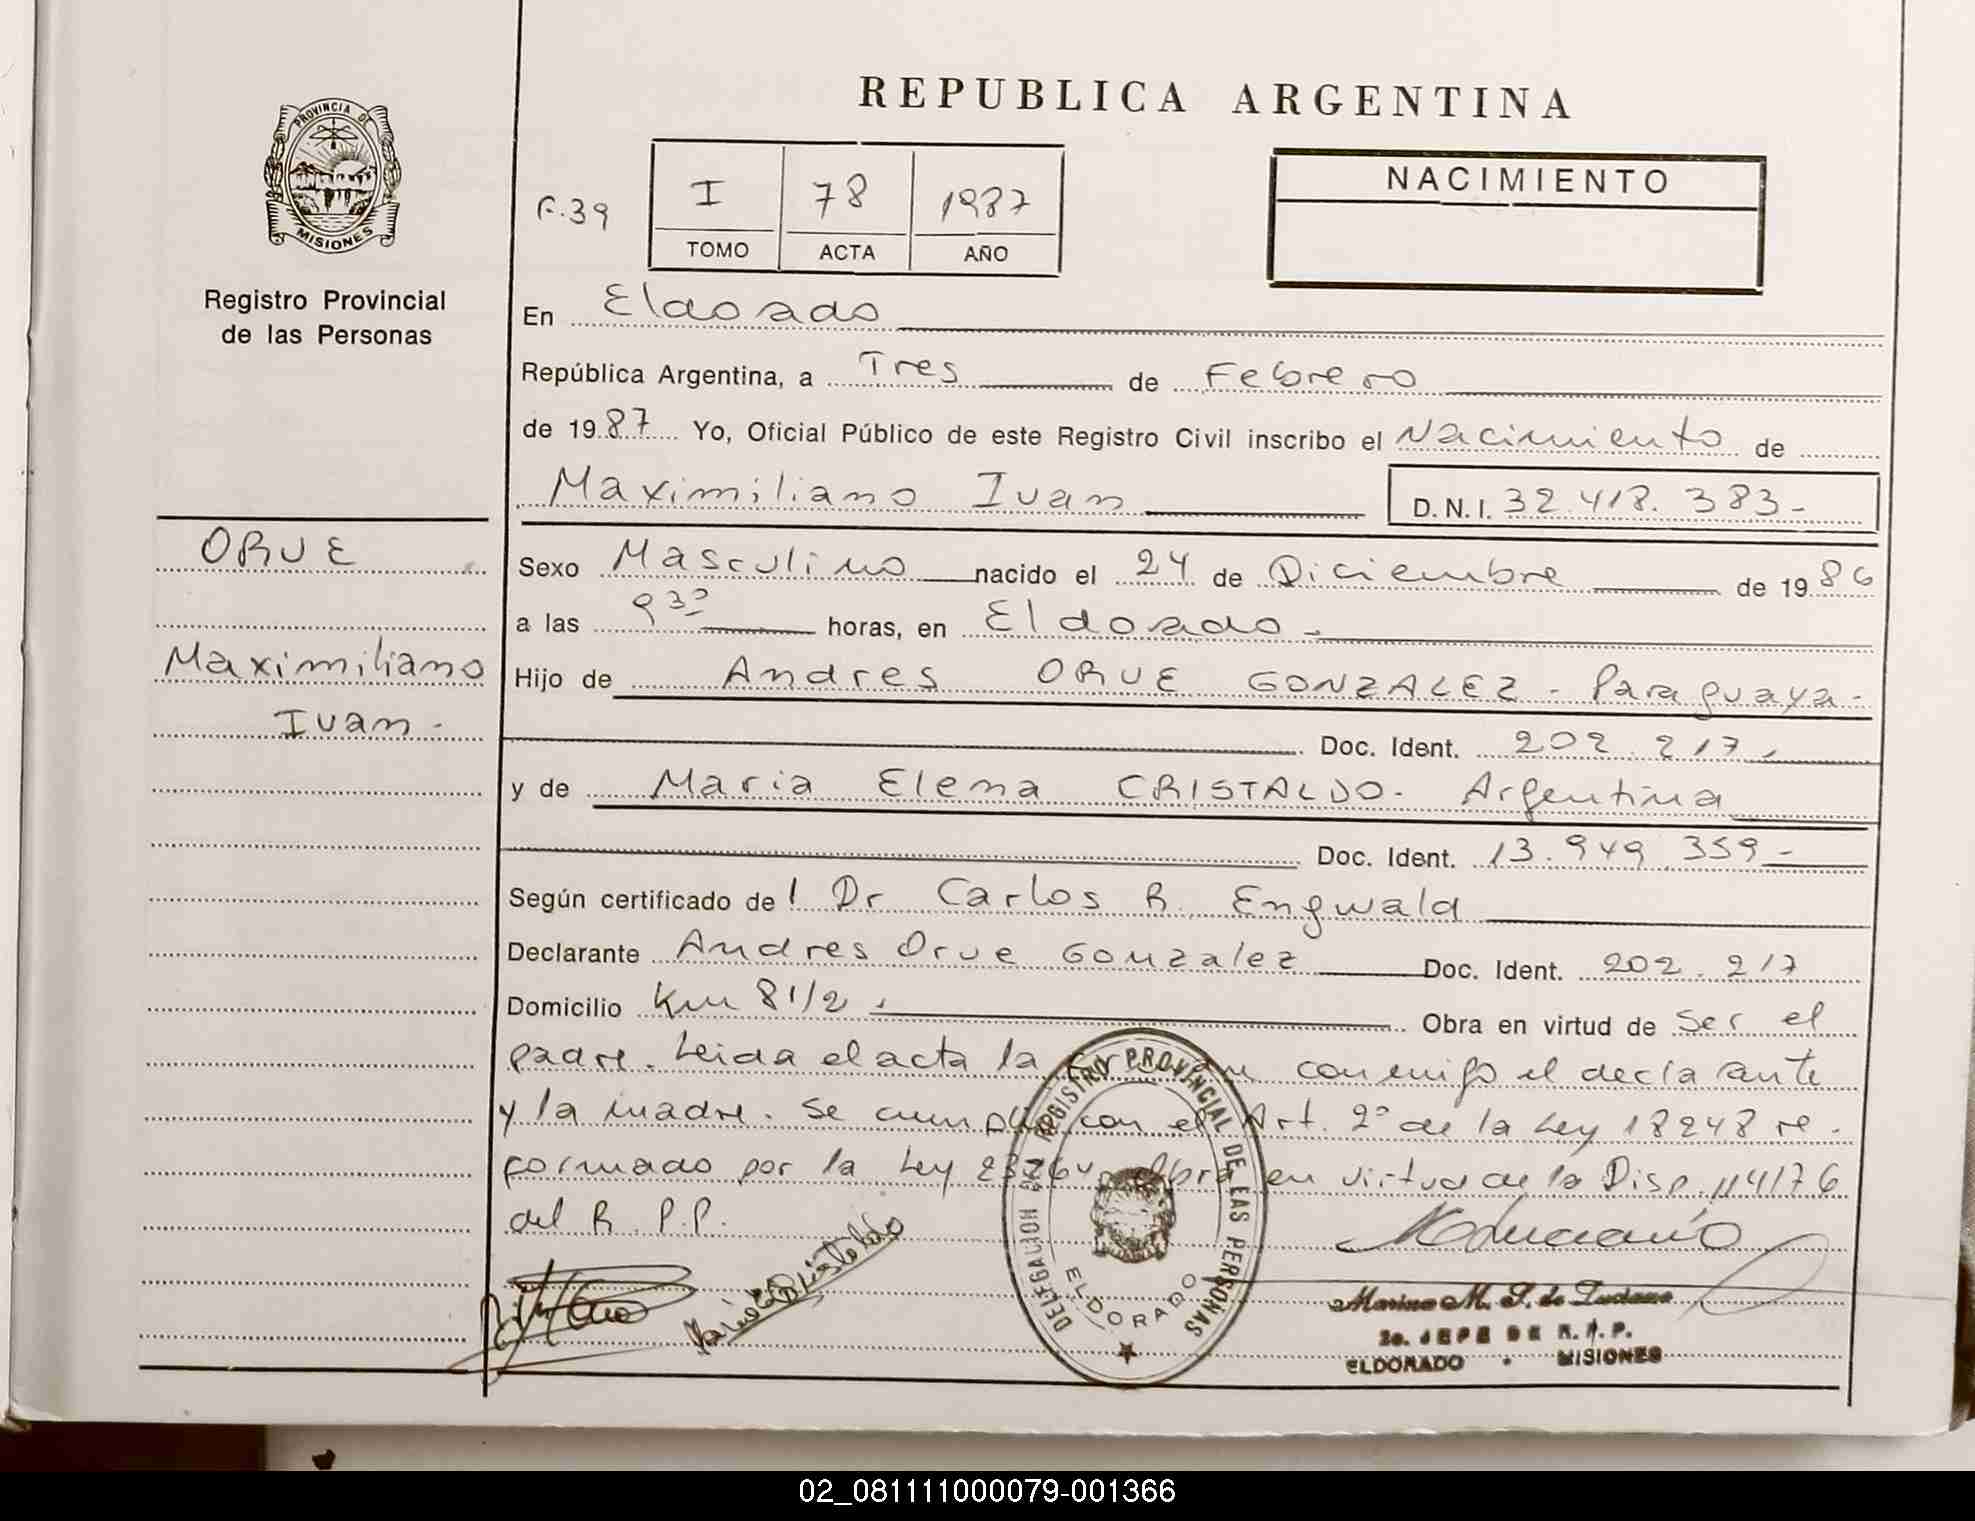 REPUBLICA ARGENTINA
PROVINCIA DE
MISIONES
Registro Provincial
de las Personas
F.39
I 78 1987
TOMO ACTA AÑO
NACIMIENTO
En Eldorado
República Argentina, a Tres de Febrero
de 1987 Yo, Oficial Público de este Registro Civil inscribo el Nacimiento de
Maximiliano Ivan D.N.I. 32.418.383-
ORUE
Maximiliano
Ivan-
Sexo Masculino nacido el 24 de Diciembre de 1986
a las 9 30 horas, en Eldorado-
Hijo de Andres ORUE GONZALEZ- Paraguaya-
Doc. Ident. 202.217.
y de Maria Elena CRISTALDO- Argentina
Doc. Ident. 13.949.359-
Según certificado del Dr Carlos R. Engwald
Declarante Andres Orue Gonzalez Doc. Ident. 202.217
Domicilio Km 8 1/2. Obra en virtud de ser el
padre. Leida el acta la conmigo el declarante
y la madre. Se cumplio con el Art. 2º de la Ley 18248 re-
formado por la Ley 23264. Obra en virtud de la Disp. 114/76
del R.P.P.
DELEGACION REGISTRO PROVINCIAL DE LAS PERSONAS
ELDORADO
Maria E Cristaldo
Marina M. S. de Luciano
2o. JEFE DE R.P.P.
ELDORADO - MISIONES
02_081111000079-001366